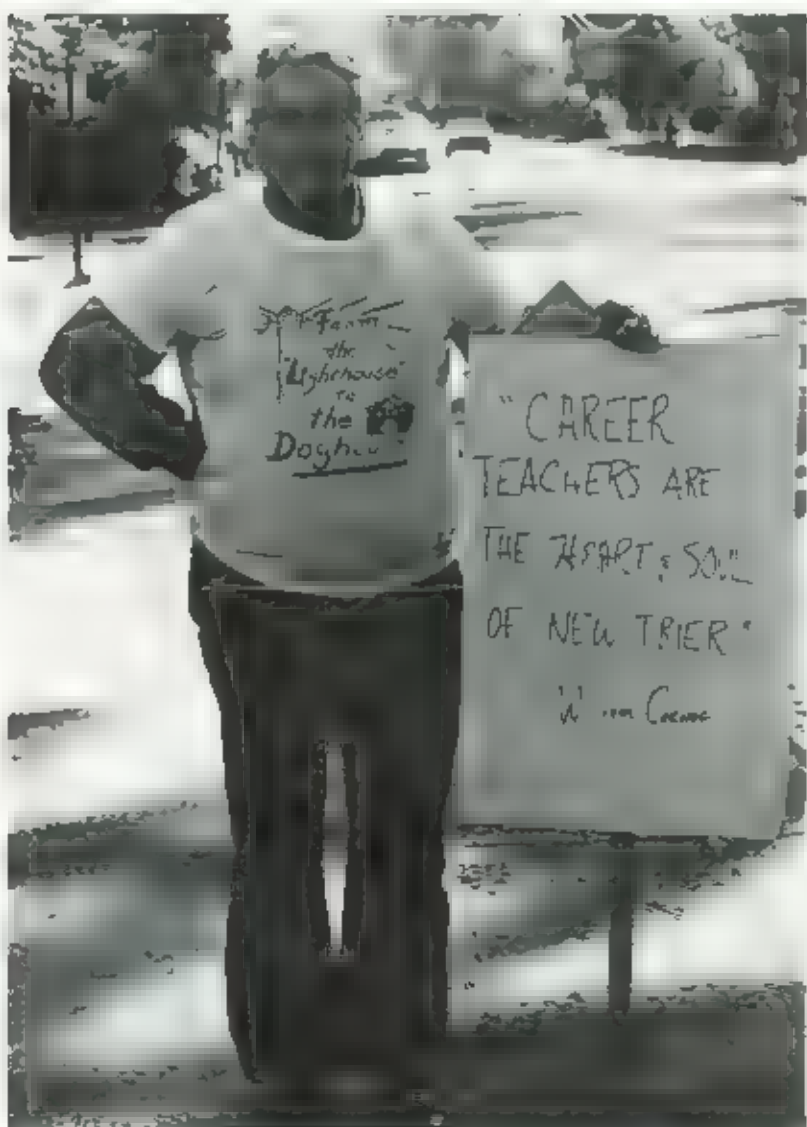 From
the
"Lighthouse"
to
the
"CAREER
TEACHERS ARE
THE HEART & SOUL
OF NEW TRIER"